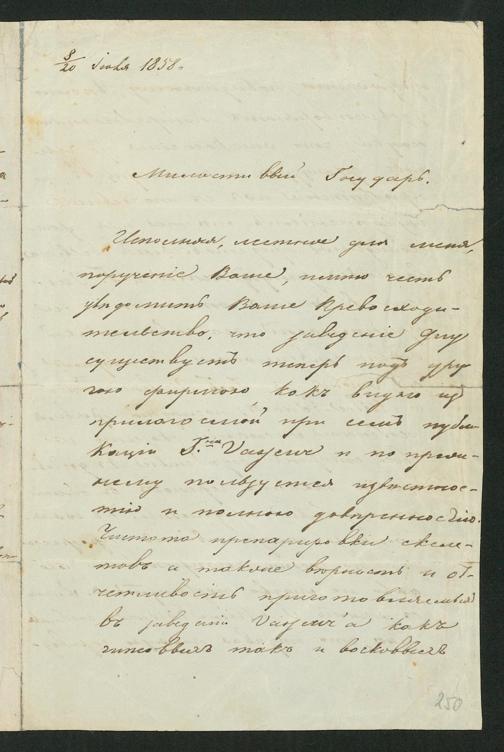 8/20 Іюля 1858.
Милостивый Государь.
Исполняя, лестное для меня,
порученіе Ваше, имѣю честь
увѣдомить Ваше Превосходи-
тельство, что заведеніе
существуетъ теперь подъ дру
гою фирмою, какъ видно изъ
прилогаемой при семъ публи-
каціи Г.на и по преж-
нему пользуется извѣстнос-
тію и полною довѣренностію.
Чистота препарировки скеле-
товъ а также вѣрность и от-
четливость приготовляемыхъ
въ заведеніи какъ
гипсовыхъ такъ и восковыхъ
250